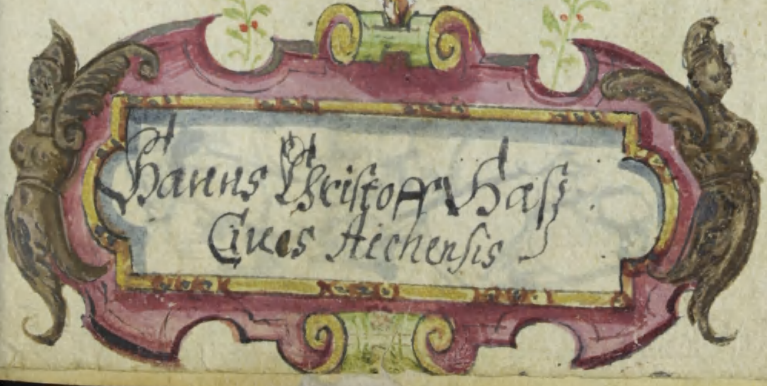 Hanns Christoff Haß
Cives Aichensis